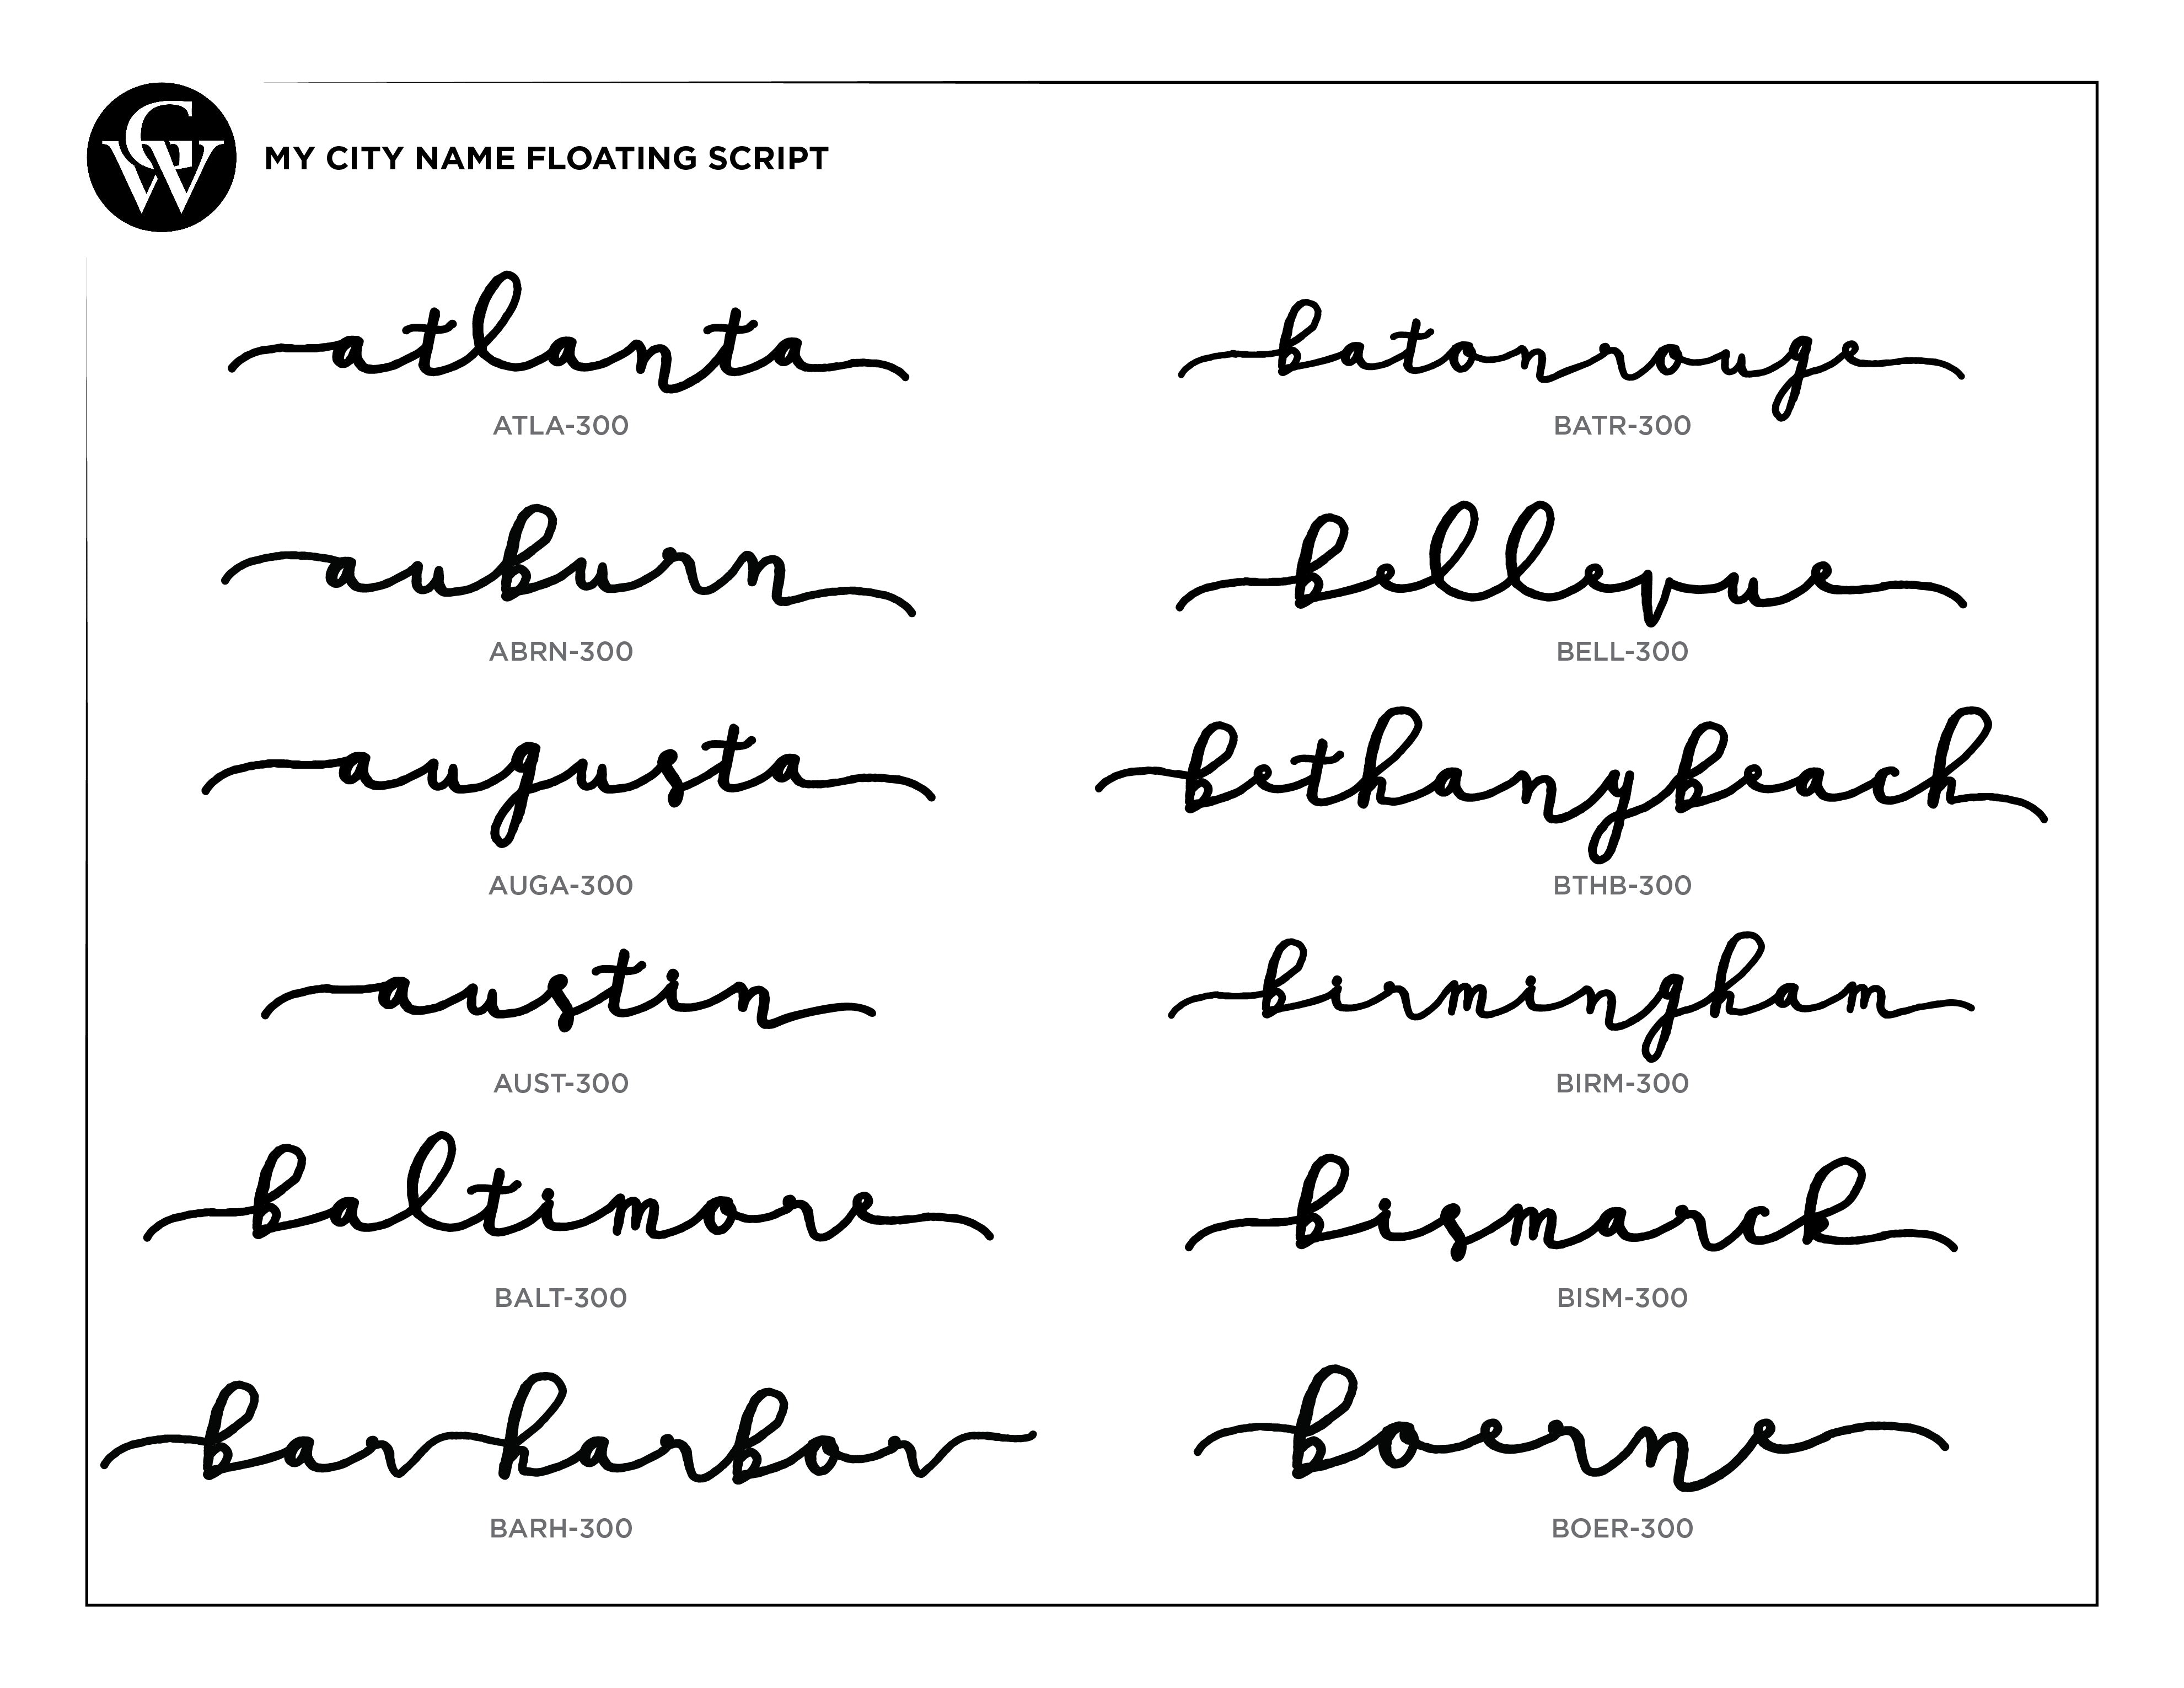 CW
MY CITY NAME FLOATING SCRIPT
atlanta
ATLA-300
auburn
ABRN-300
augusta
AUGA-300
austin
AUST-300
baltimore
BALT-300
barharbor
BARH-300
batonrouge
BATR-300
bellevue
BELL-300
bethanybeach
BTHB-300
birmingham
BIRM-300
bismarck
BISM-300
boerne
BOER-300